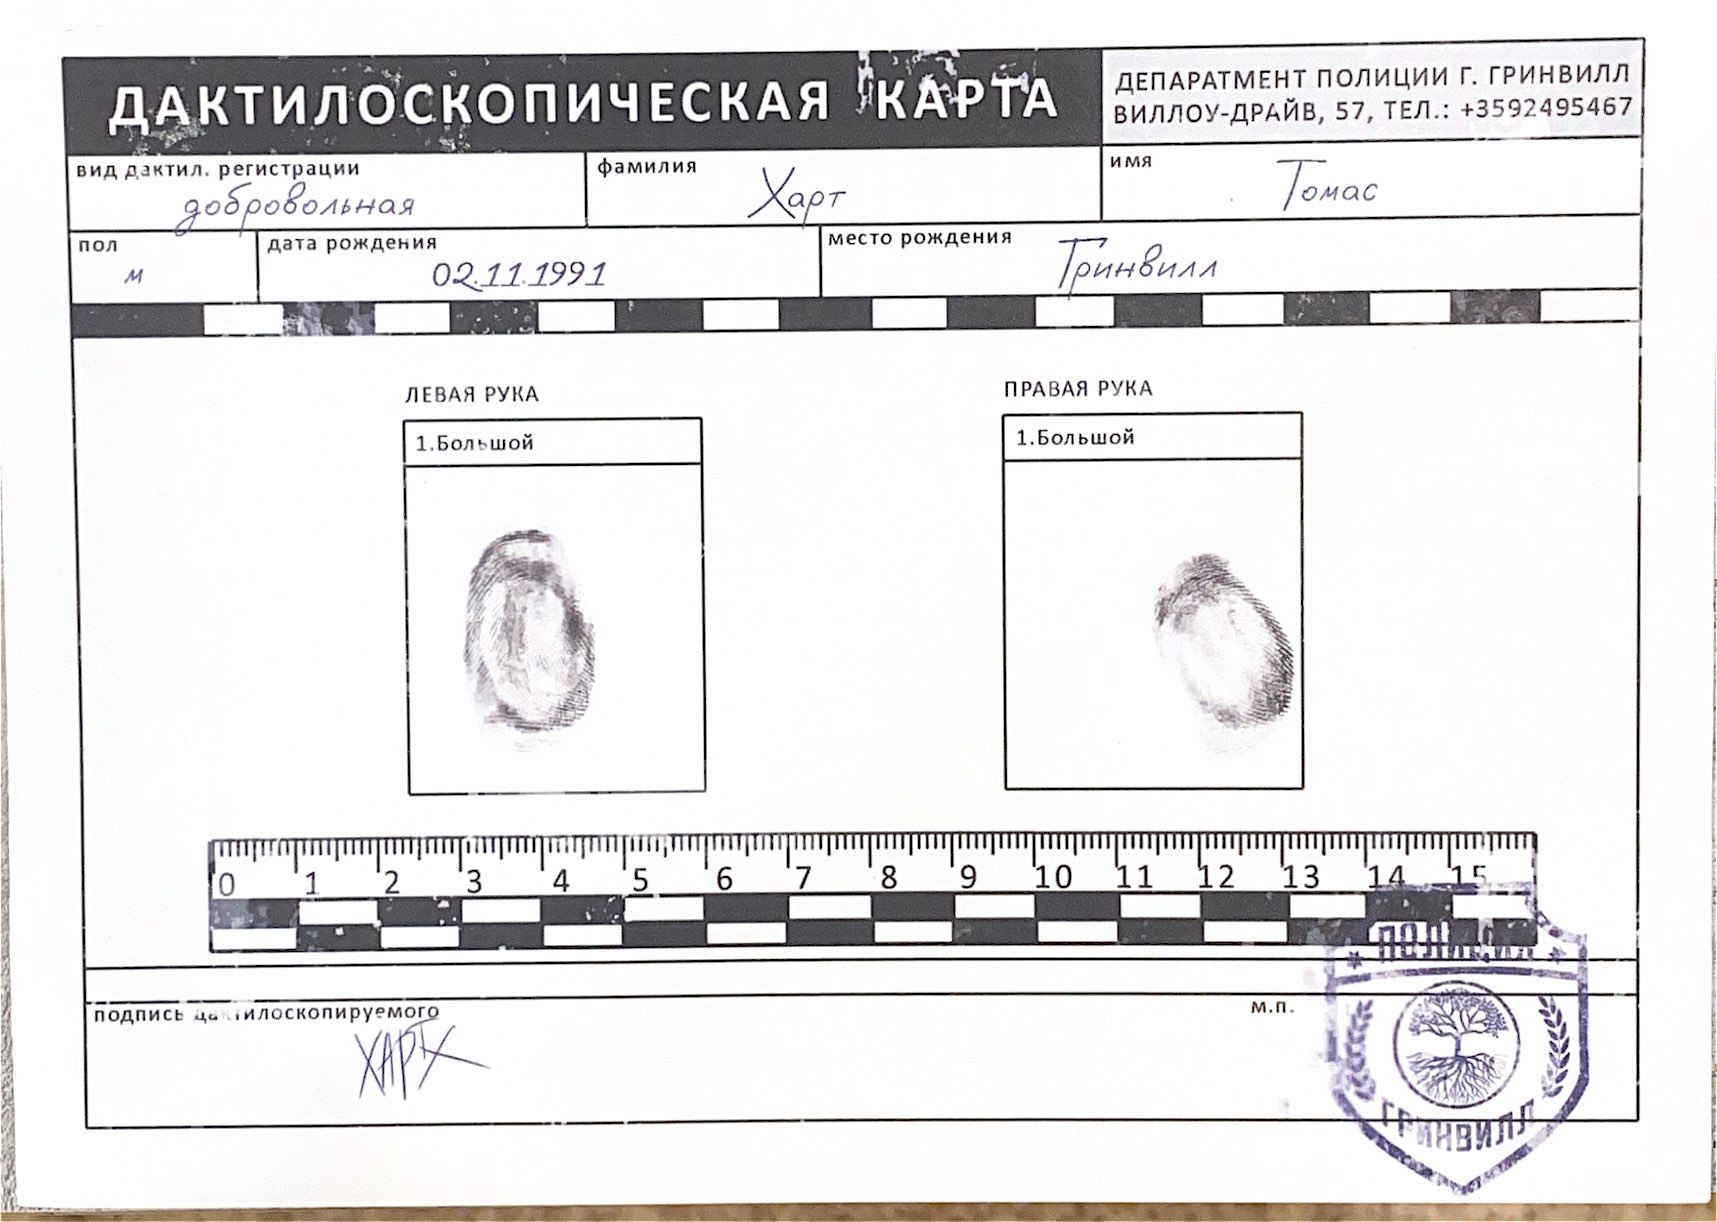 ДАКТИЛОСКОПИЧЕСКАЯ КАРТА
ДЕПАРАТМЕНТ ПОЛИЦИИ Г. ГРИНВИЛЛ
ВИЛЛОУ-ДРАЙВ, 57, ТЕЛ.: +3592495467
вид дактил. регистрации
добровольная
фамилия
Харт
имя
Томас
пол
м
дата рождения
02.11.1991
место рождения
Гринвилл
ЛЕВАЯ РУКА
1.Большой
ПРАВАЯ РУКА
1.Большой
0 1 2 3 4 5 6 7 8 9 10 11 12 13 14 15
подпись дактилоскопируемого
ХАРТ
м.п.
ПОЛИЦИЯ
ГРИНВИЛЛ